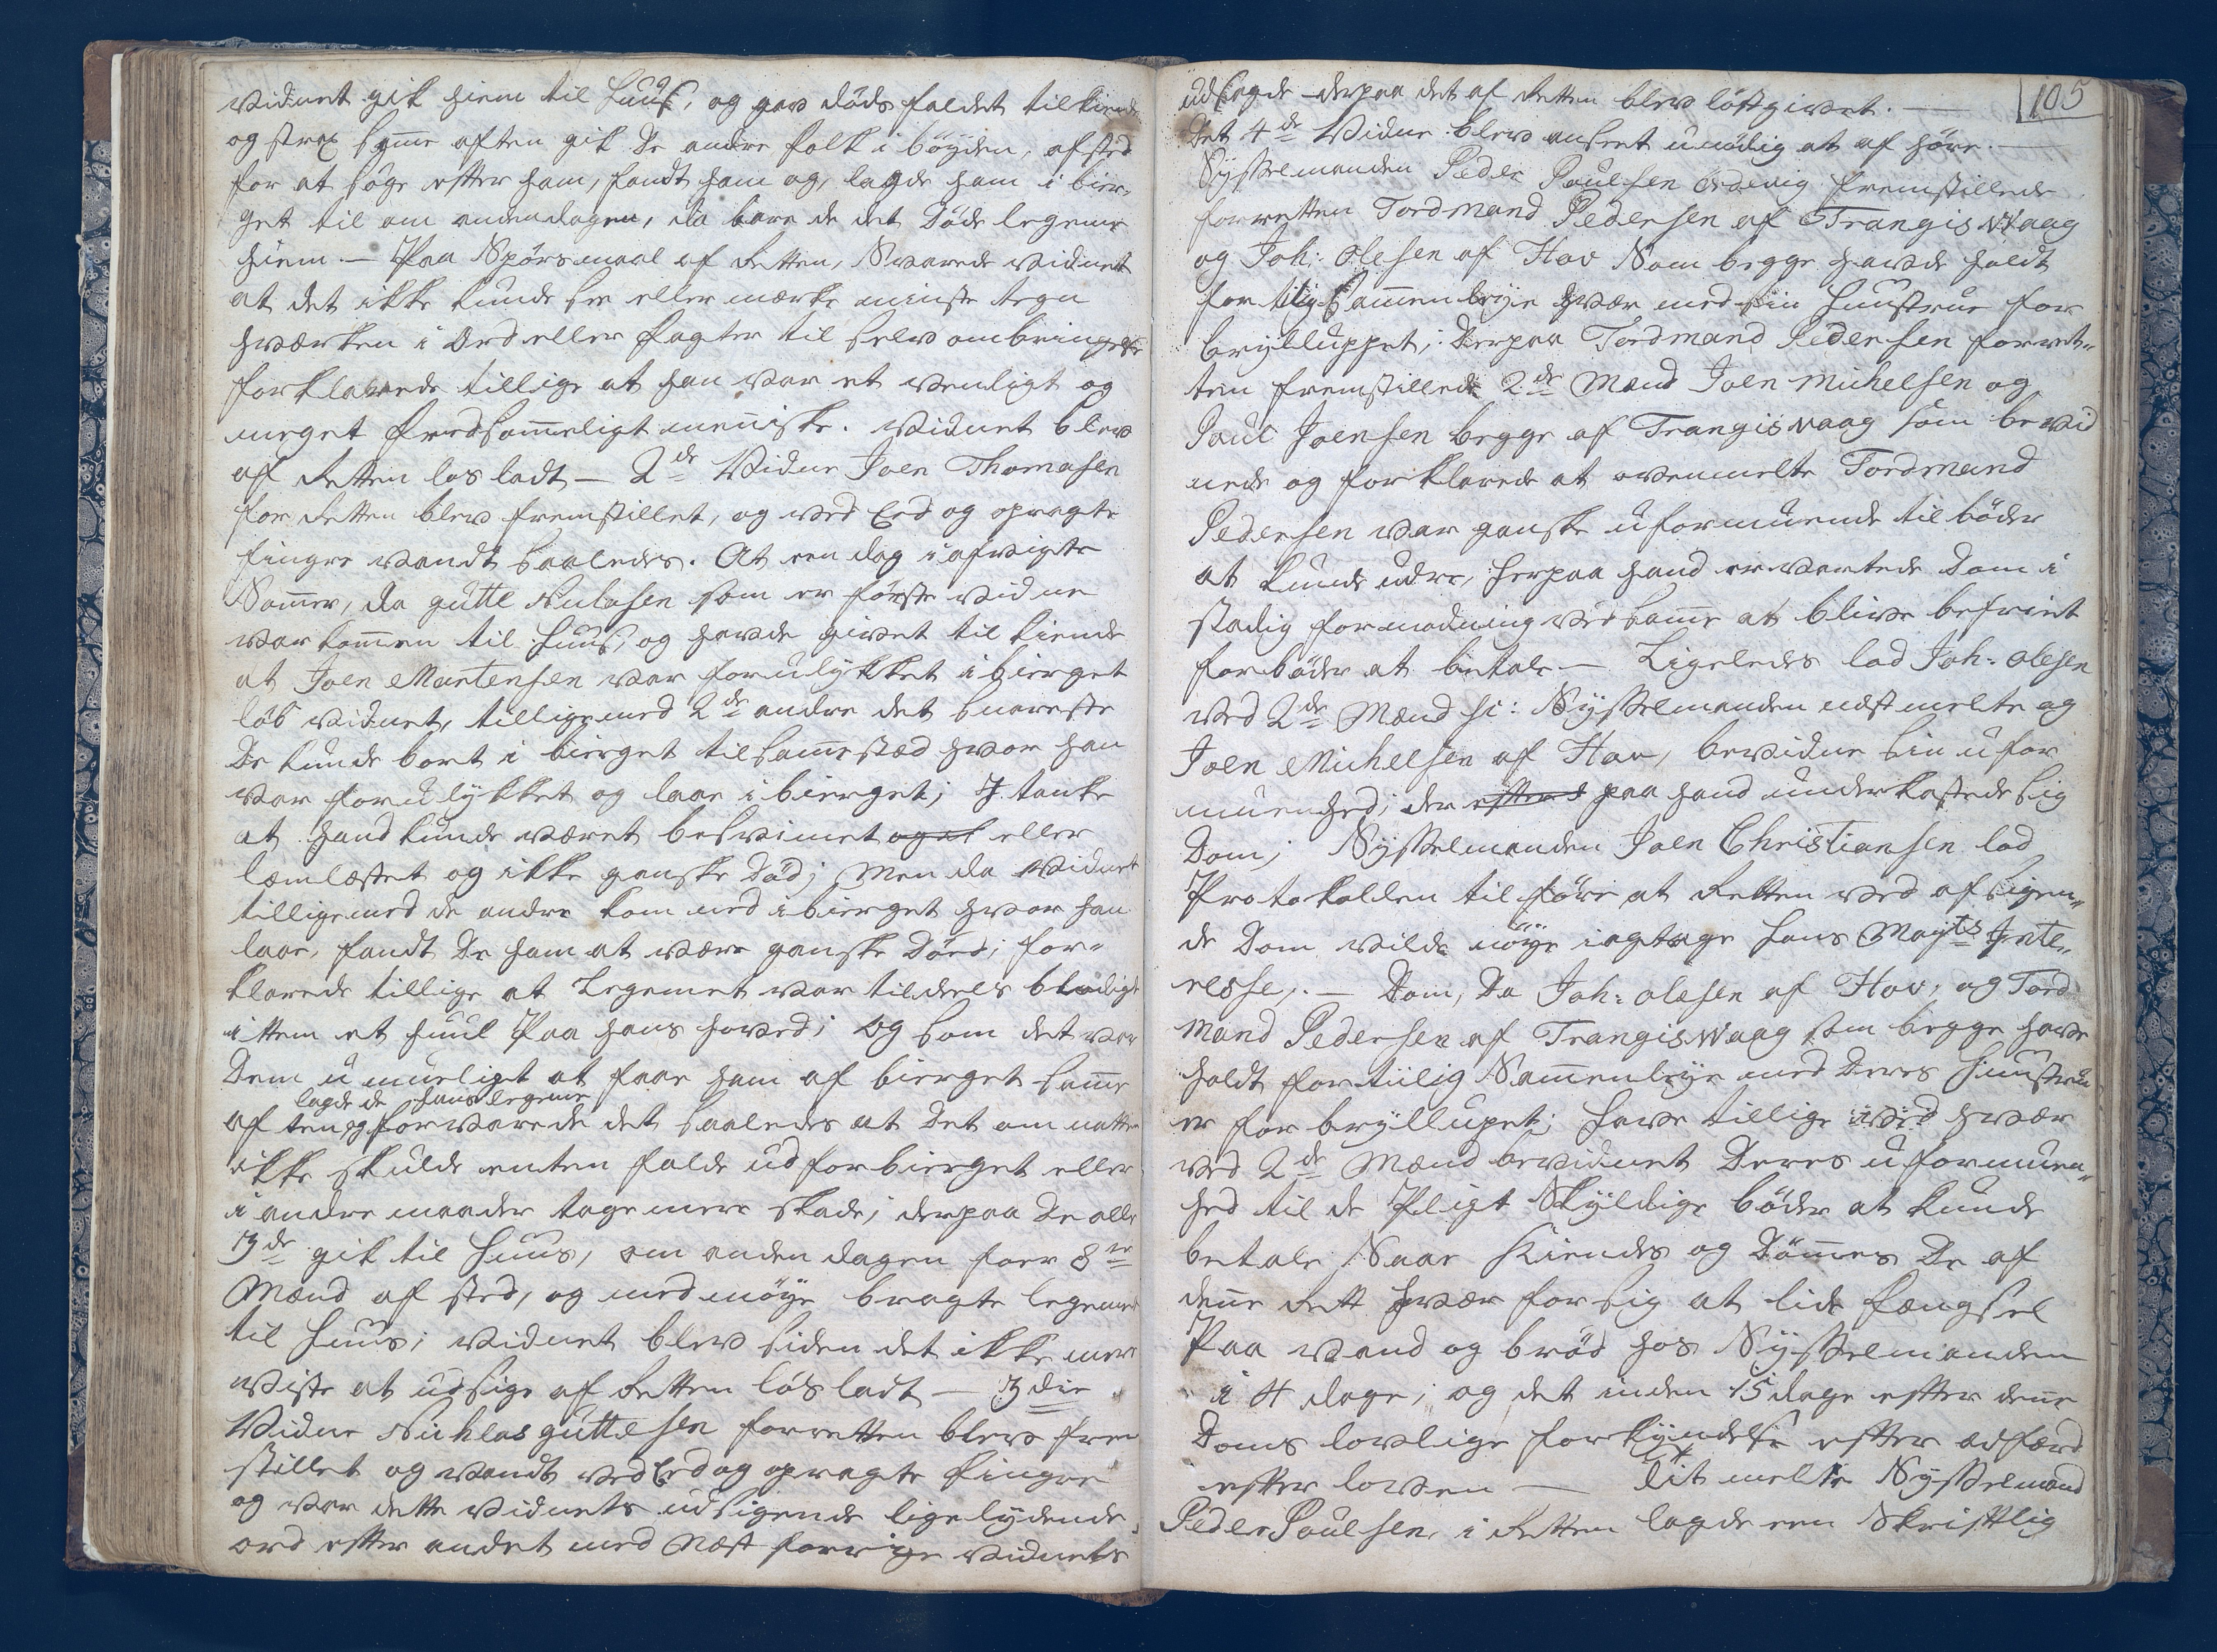 vidnet gik hiem til huus, og gav døds faldet tilkiende
og strax samme aften gik De andre folk i bøyden, afsted
for at søge efter ham, fandt ham og, lagde ham i bier-
get til om andendagen, da bare de det Døde legeme
hiem — Paa Spørsmaal af Retten, Svarede vidnet
at det ikke kunde see eller mærke minste tegn
hværken i Ord eller fagter til selvombringelse
forklarede tillige at han var et venligt og
meget fredsommeligt menniske. vidnet blev
af Retten los ladt — 2de Vidne Joen Thomasen
for Retten blev fremstillet, og ved Eed og opragte
fingre vandt saaledes. At een dag i afvigte
Sommer, da gutte Niclasen som er første vidne
var kommen til huus, og havde givet til kiende
at Joen Martensen var forulykket i bierget
løb vidnet, tillige med 2de andre det snareste
De kunde bort i bierget til samme stæd hvor han
var forulykket og laae i bierget; J tanke
at hand kunde været besvimet og et eller
læmlæstet og ikke ganske Død; Men da Vidnet
tilligemed de andre kom ned i bierget hvor han
laae, fandt De ham at være ganske Død; for-
klarede tillige at Legemet var tildeels blodigt
ittem et huul Paa hans hoved; og som det var
Dem umueligt at faae ham af bierget samme
lagde de hans legeme
aften og forvarede det saaledes at Det om natten
ikke skulde enten falde ud for bierget eller
i andre maader tage mere skade; derpaa De alle
3de gik til huus, om anden dagen foer 8te
Mænd af sted, og med møye bragte legemet
til huus; vidnet blev siden det ikke mere
viste at udsige af Retten løsladt — 3die
Vidne Nichlas guttesen for retten blev frem
stillet og vandt ved Eed og opragte fingre
og var dette vidnets udsigende ligelydende
ord efter andet med Næst forrige vidnets
105
udsagde derpaa det af Retten blev løstgivet. —
Det 4de Vidne blev anseet unødig at af høre. —
Sysselmanden Peder Poulsen Ordevig fremstillede
for retten Tordmand Pedersen af Trangisvaag
og Joh: Olesen af Hov Som begge havde holdt
for tilig Sammenleye hvær med sin huustrue for
brylluppet; Derpaa Tordmand Pedersen for ret-
ten fremstillede 2de Mænd Joen Michelsen og
Poul Joensen begge af Trangisvaag som bevid
nede og forklarede at ovenmelte Tordmand
Pedersen var ganske uformuende til bøder
at kunde udre, herpaa hand ervartede Dom i
stadig formodning ved samme at blive befriet
for bøder at betale — Ligeledes lod Joh: Olesen
ved 2de Mænd sc: Sysselmanden nest melte og
Joen Michelsen af Hov, bevidne sin ufor
muenhed; der efter paa hand underkastede sig
Dom; Sysselmanden Joen Christiansen lod
Protokollen tilføre at Retten ved afsigen-
de Dom vilde nøye iagtage hans Mayts Inte-
resse. — Dom, Da Joh: Olesen af Hov, og Tord
mand Pedersen af Trangisvaag som begge have
holdt for tiilig Sammenleye med Deres huustru
er for bryllupet; have tillige hvær
ved 2de Mænd bevidnet Deres uformuen-
hed til de Pligt Skyldige bøder at kunde
betale, Saa Kiendes og Dømmes De af
denne Rett hvær for sig at lide fængsel
Paa vand og brød hos Sysselmanden
i 4 dage; og det inden 15 dage efter denne
Doms lovlige forkyndelse efter adfærd
efter loven — Tit melte Sysselmand
Peder Poulsen, i Retten lagde een Skriftlig